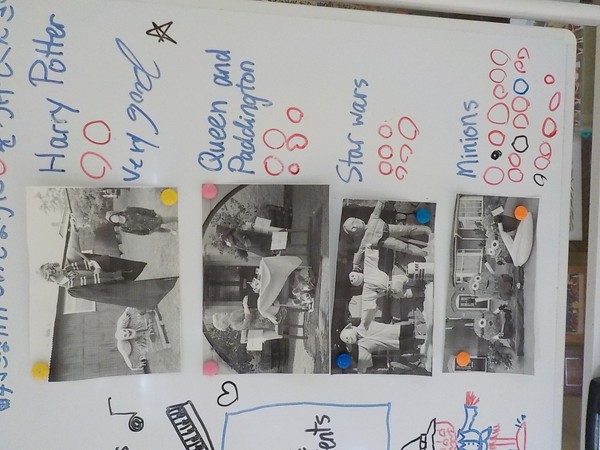 Harry Potter
very good
Queen and
Paddington
Star wars
Minions
ents